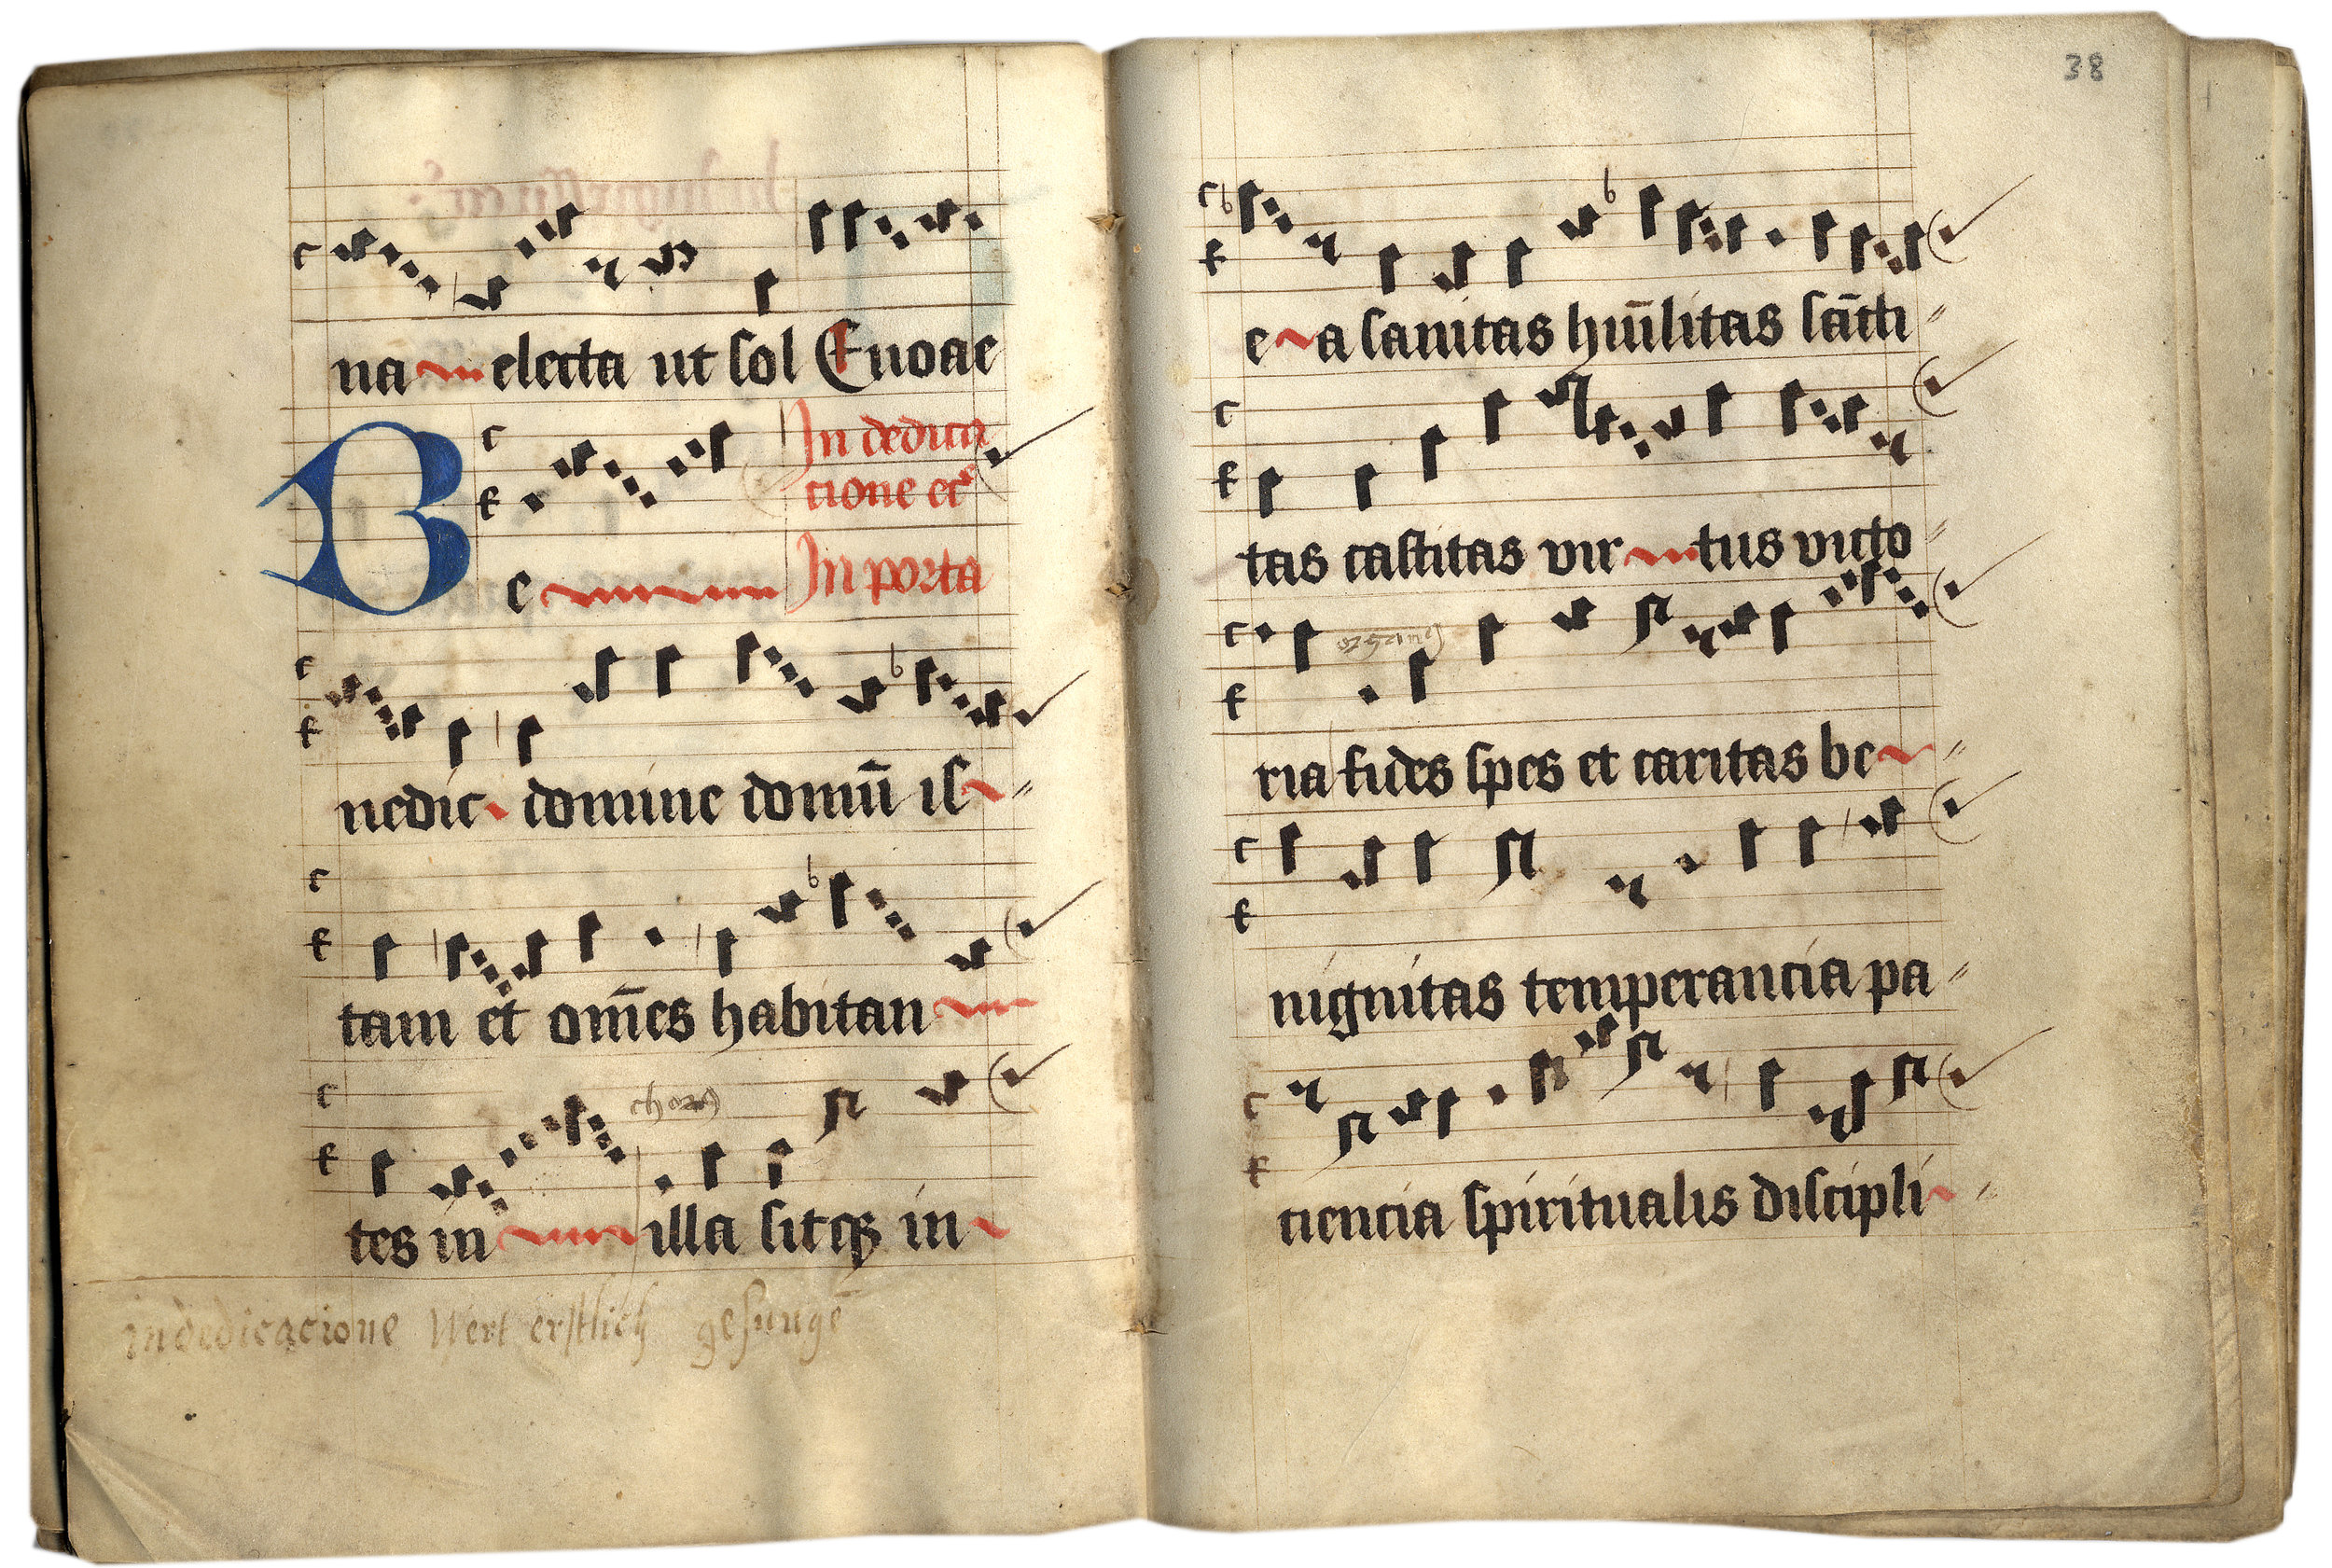 na electa ut sol Euoae
In dedica
tione ecc
Be In porta
nedic domine domū is
tam et om̄es habitan
chorꝰ
tes in illa sitqꝫ in
indedicacione Wert erstlich gesungē
38
e a sanitas hūilitas sācti
tas castitas vir tus victo
ria fides spes et caritas be
nignitas temperancia pa
ciencia spiritualis discipli